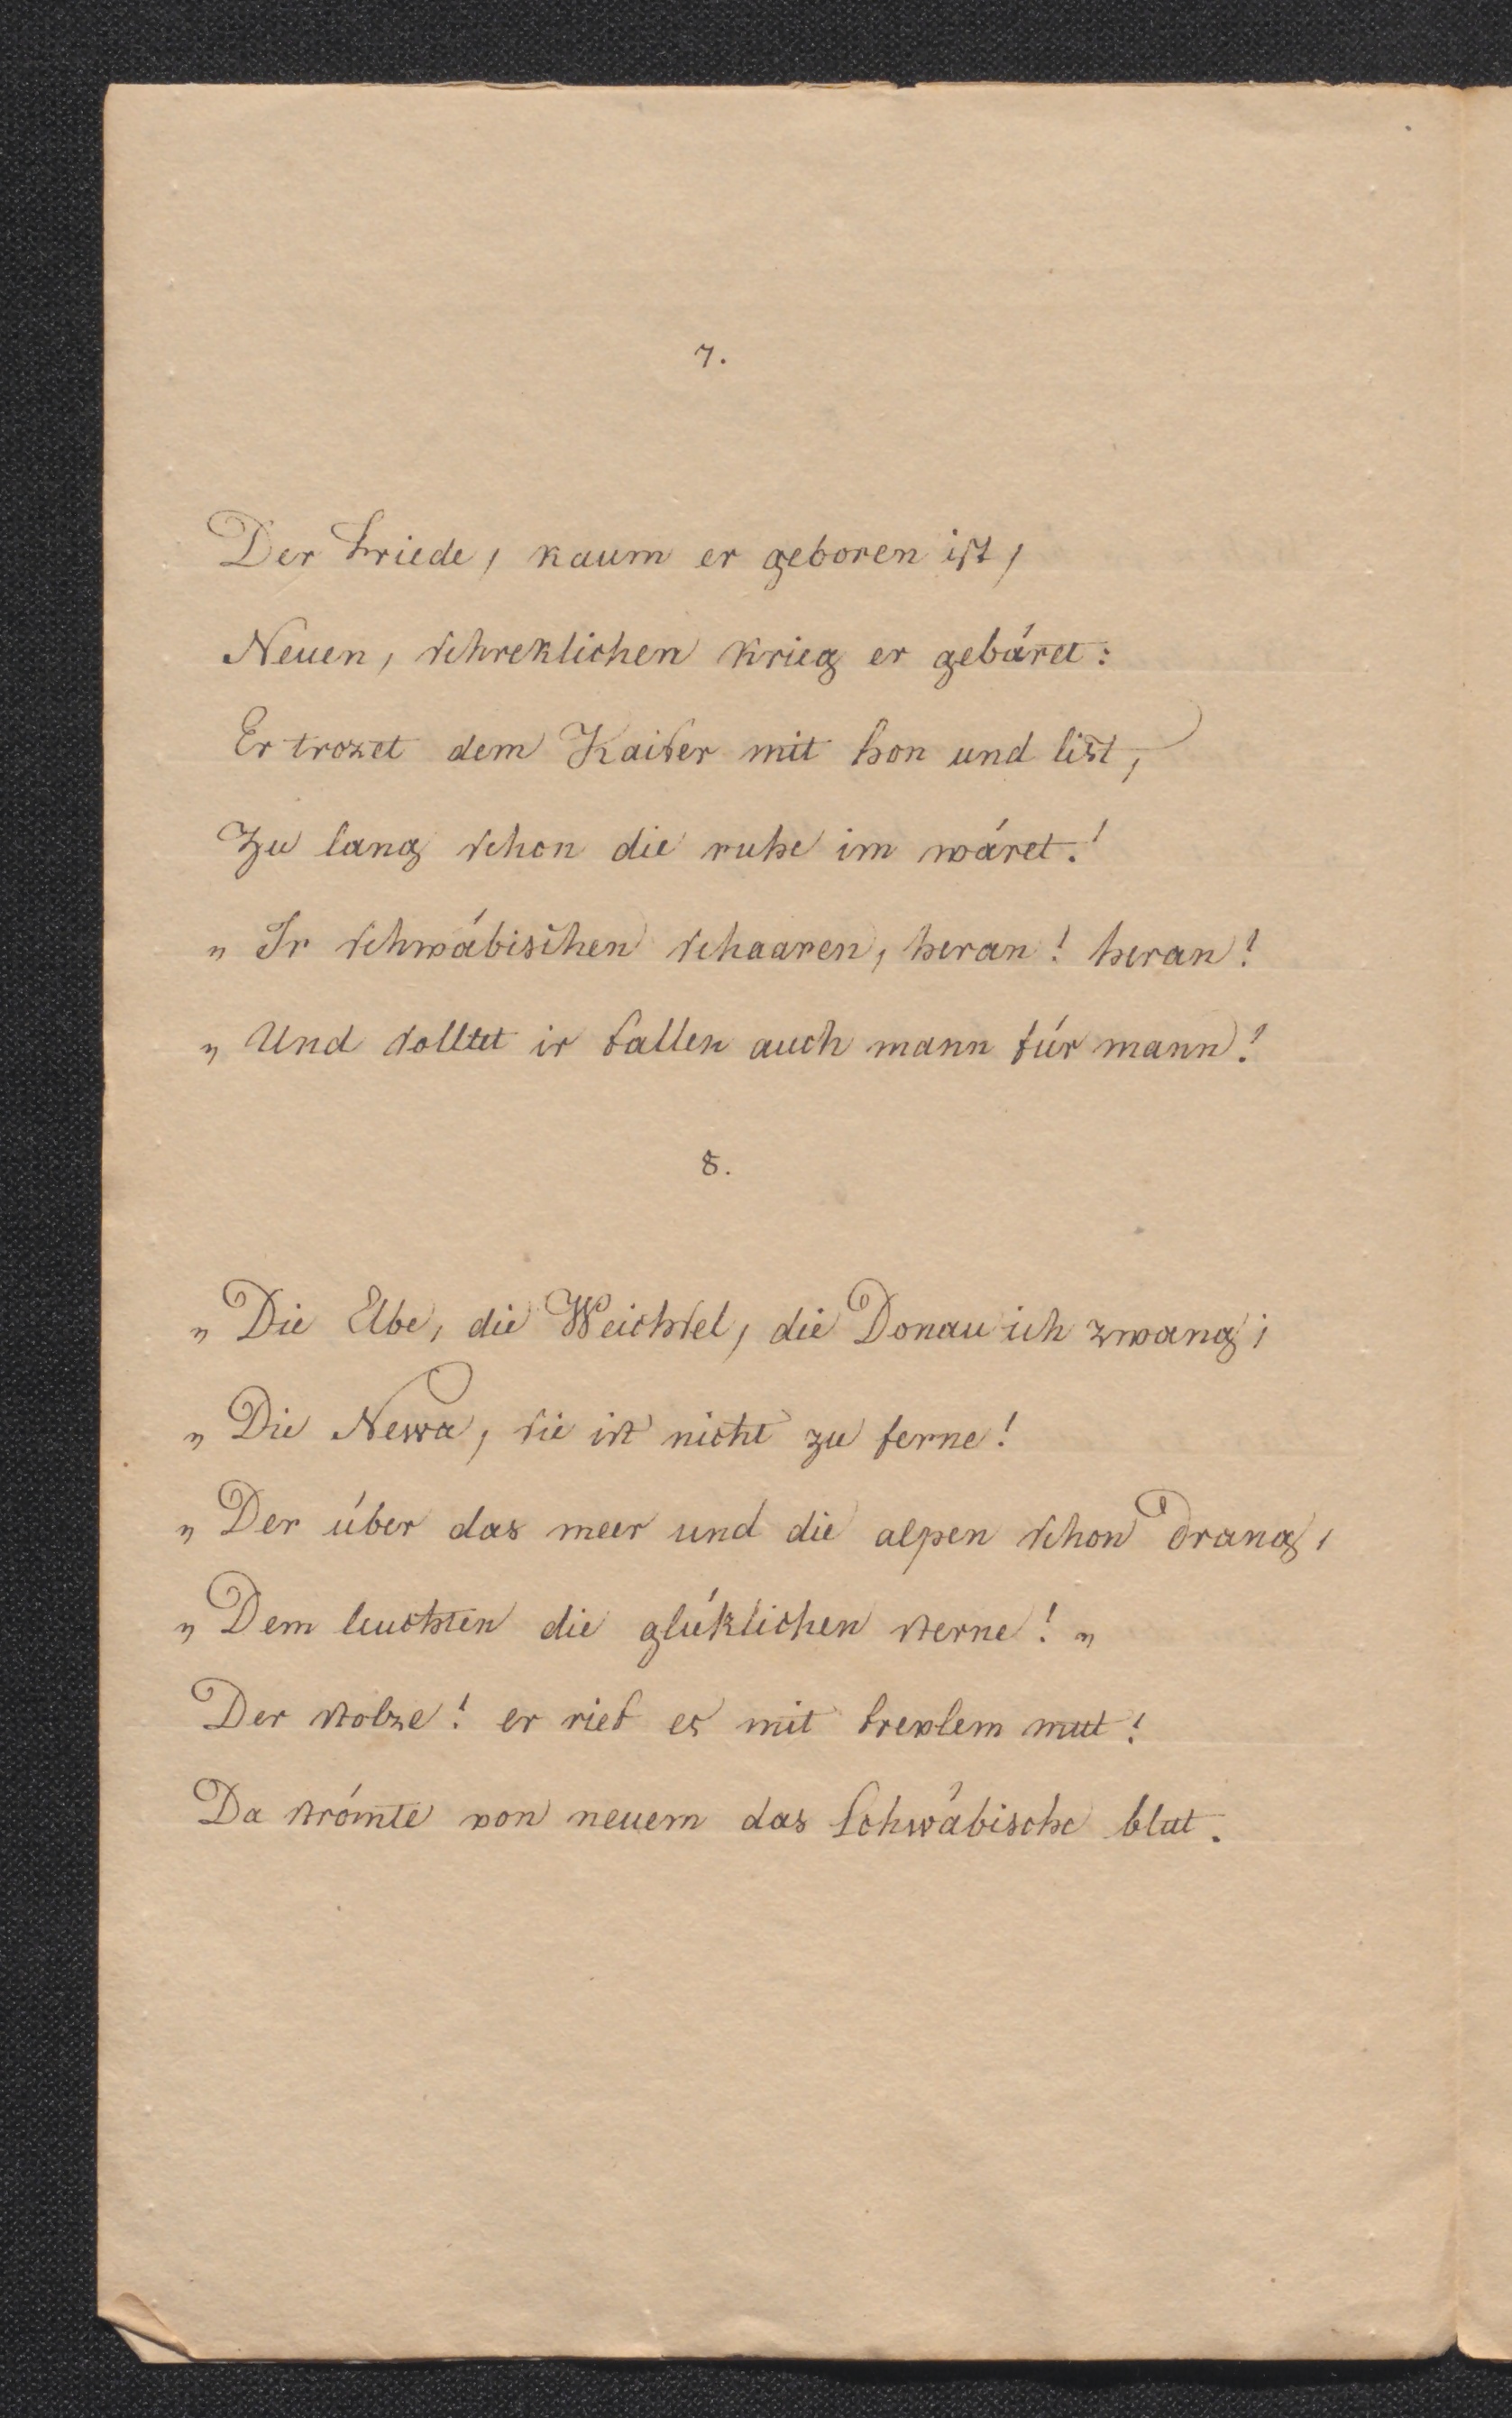 7.
Der Friede, kaum er geboren ist,
Neuen, schreklichen krieg er gebäret:
Er trozet dem Kaiser mit hon und list,
Zu lang schon die ruhe im wäret!
„ Ir schwäbischen schaaren, heran! heran!
„ Und solltet ir fallen auch mann für mann!
8.
„ Die Elbe, die Weichsel, die Donau ich zwang;
„ Die Newa, sie ist nicht zu ferne!
„ Der über das meer und die alpen schon drang,
„ Dem leuchten die glüklichen sterne! „
Der stolze! er rief es mit frevlem mut!
Da strömte von neuem das Schwäbische blut.